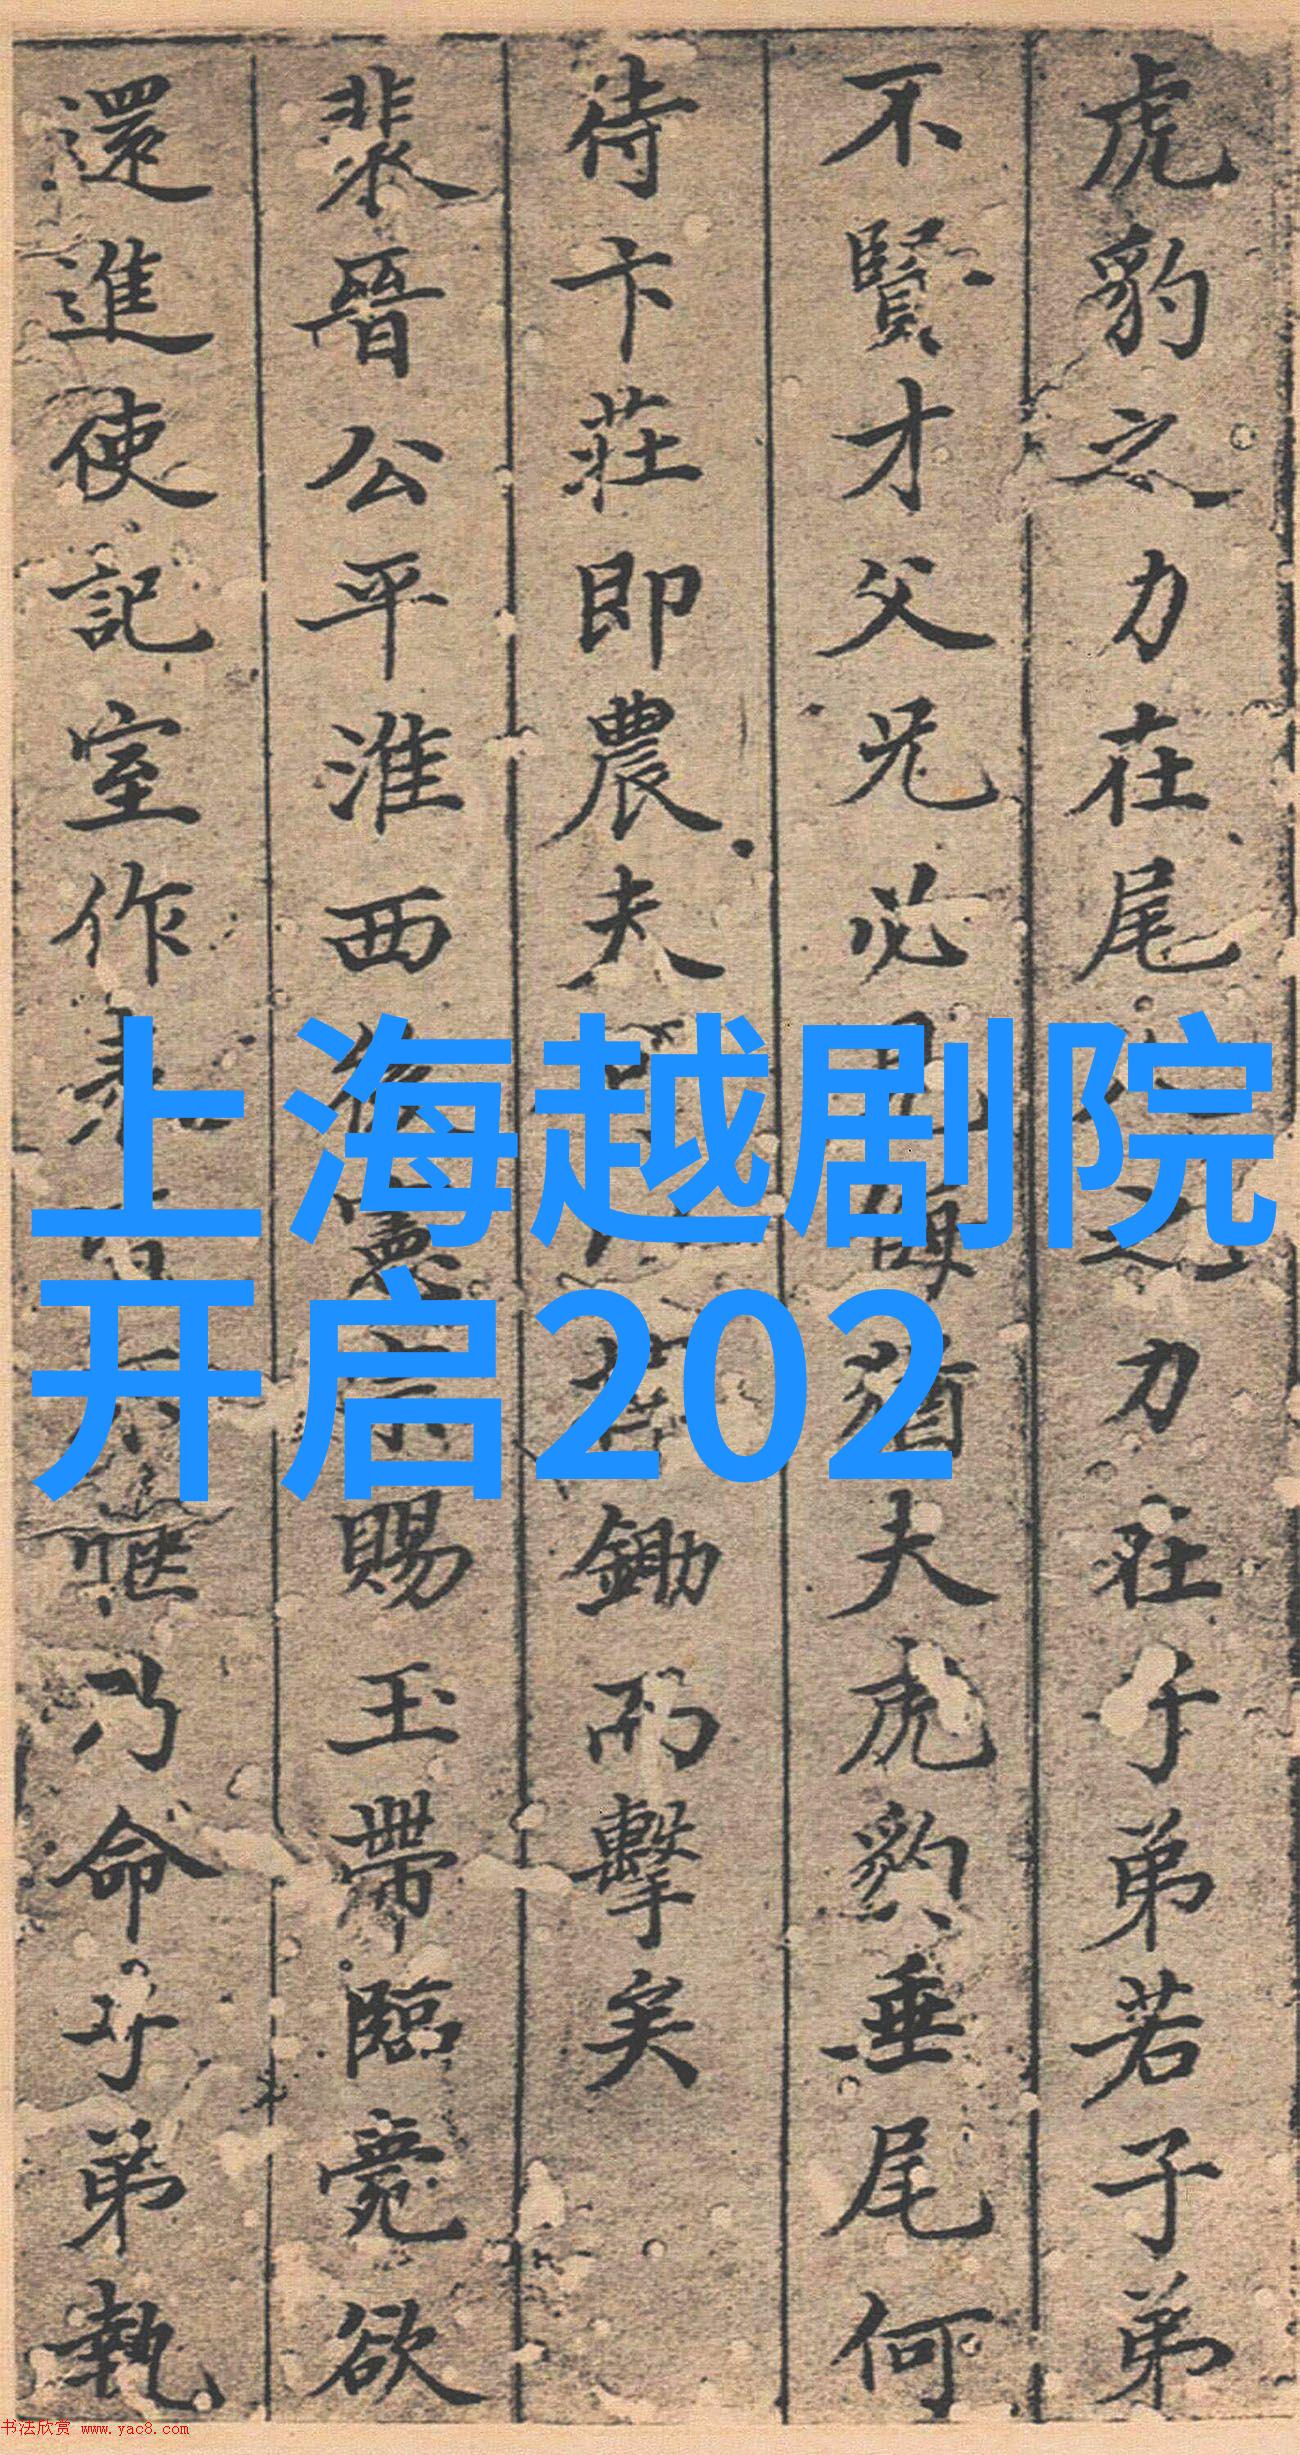 虎豹之力在尾人之力在子弟若子弟
不賢才父兄必見侮猶夫虎豹垂尾何
待卞莊即農夫荷鋤而擊矣
裴晉公平淮西後憲宗賜玉帶臨薨欲
還進使記室作表皆不愜乃命子弟執
上海越剧院
开启202
书法欣赏 www.yac8.com